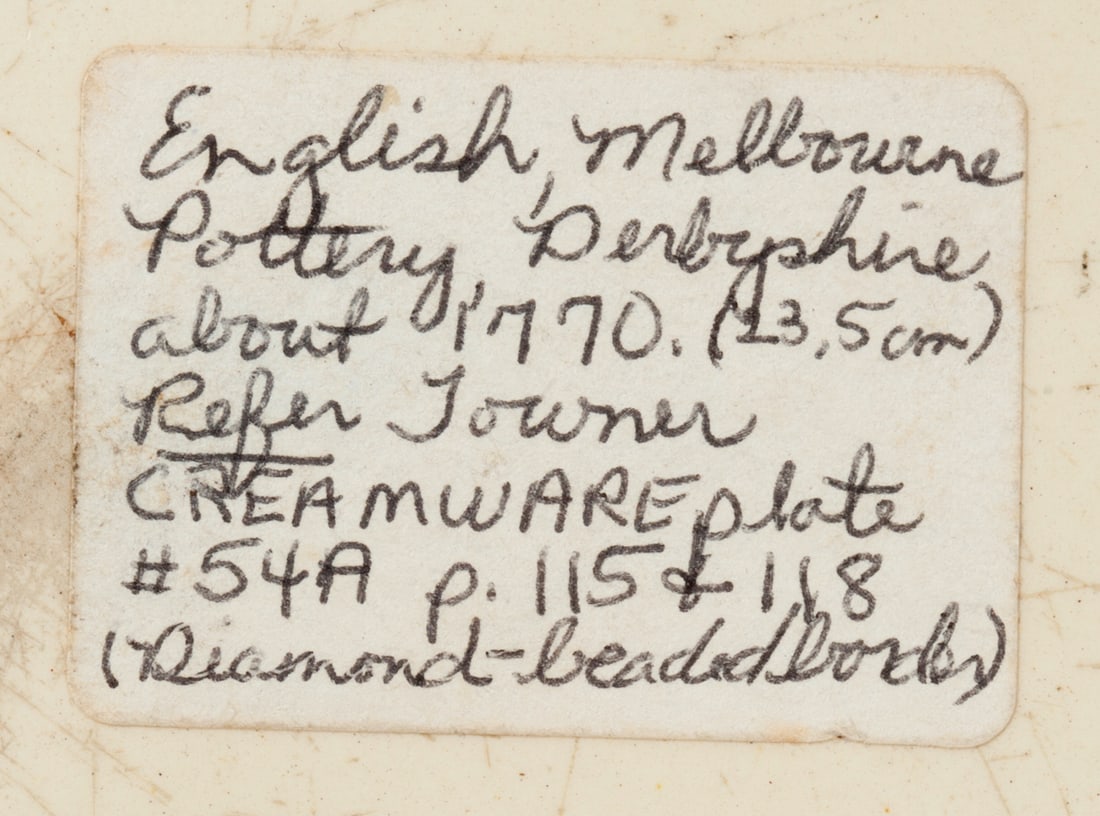 English, Melbourne
Pottery, Derbyshire
about 1770. (23,5cm)
Refer Towner
CREAMWARE plate
#54A p. 115 & 118
(Diamond-beaded border)